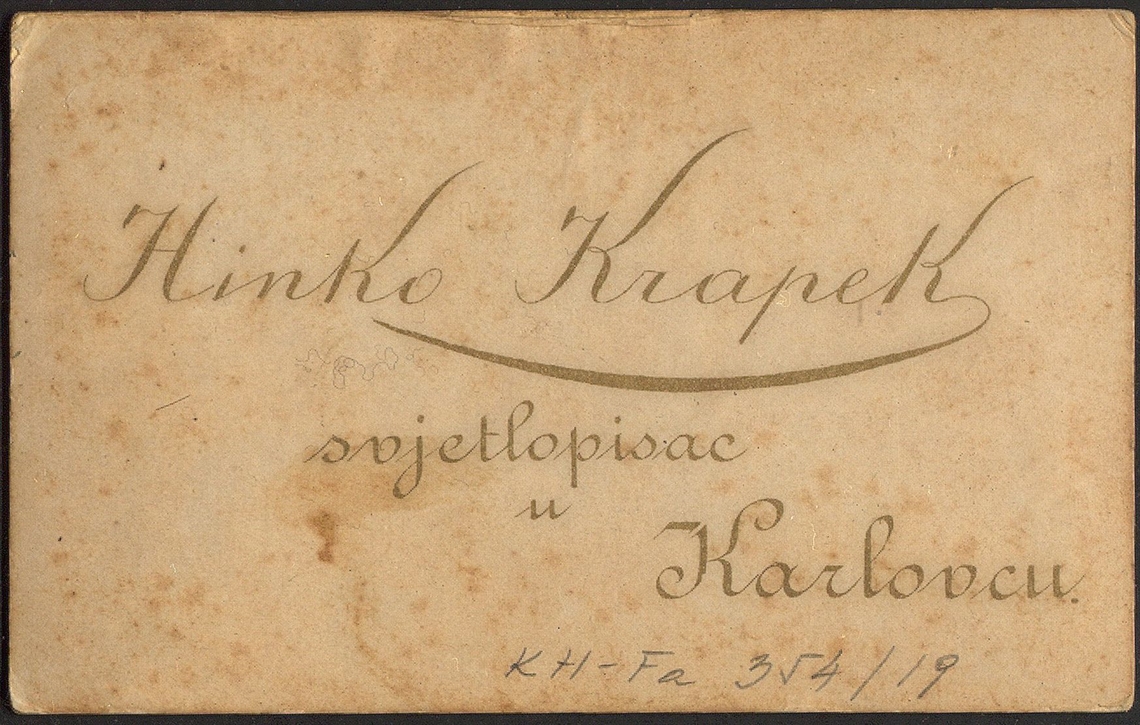 Hinko Krapek
svjetlopisac
u
Karlovcu.
KH-Fa 354/19